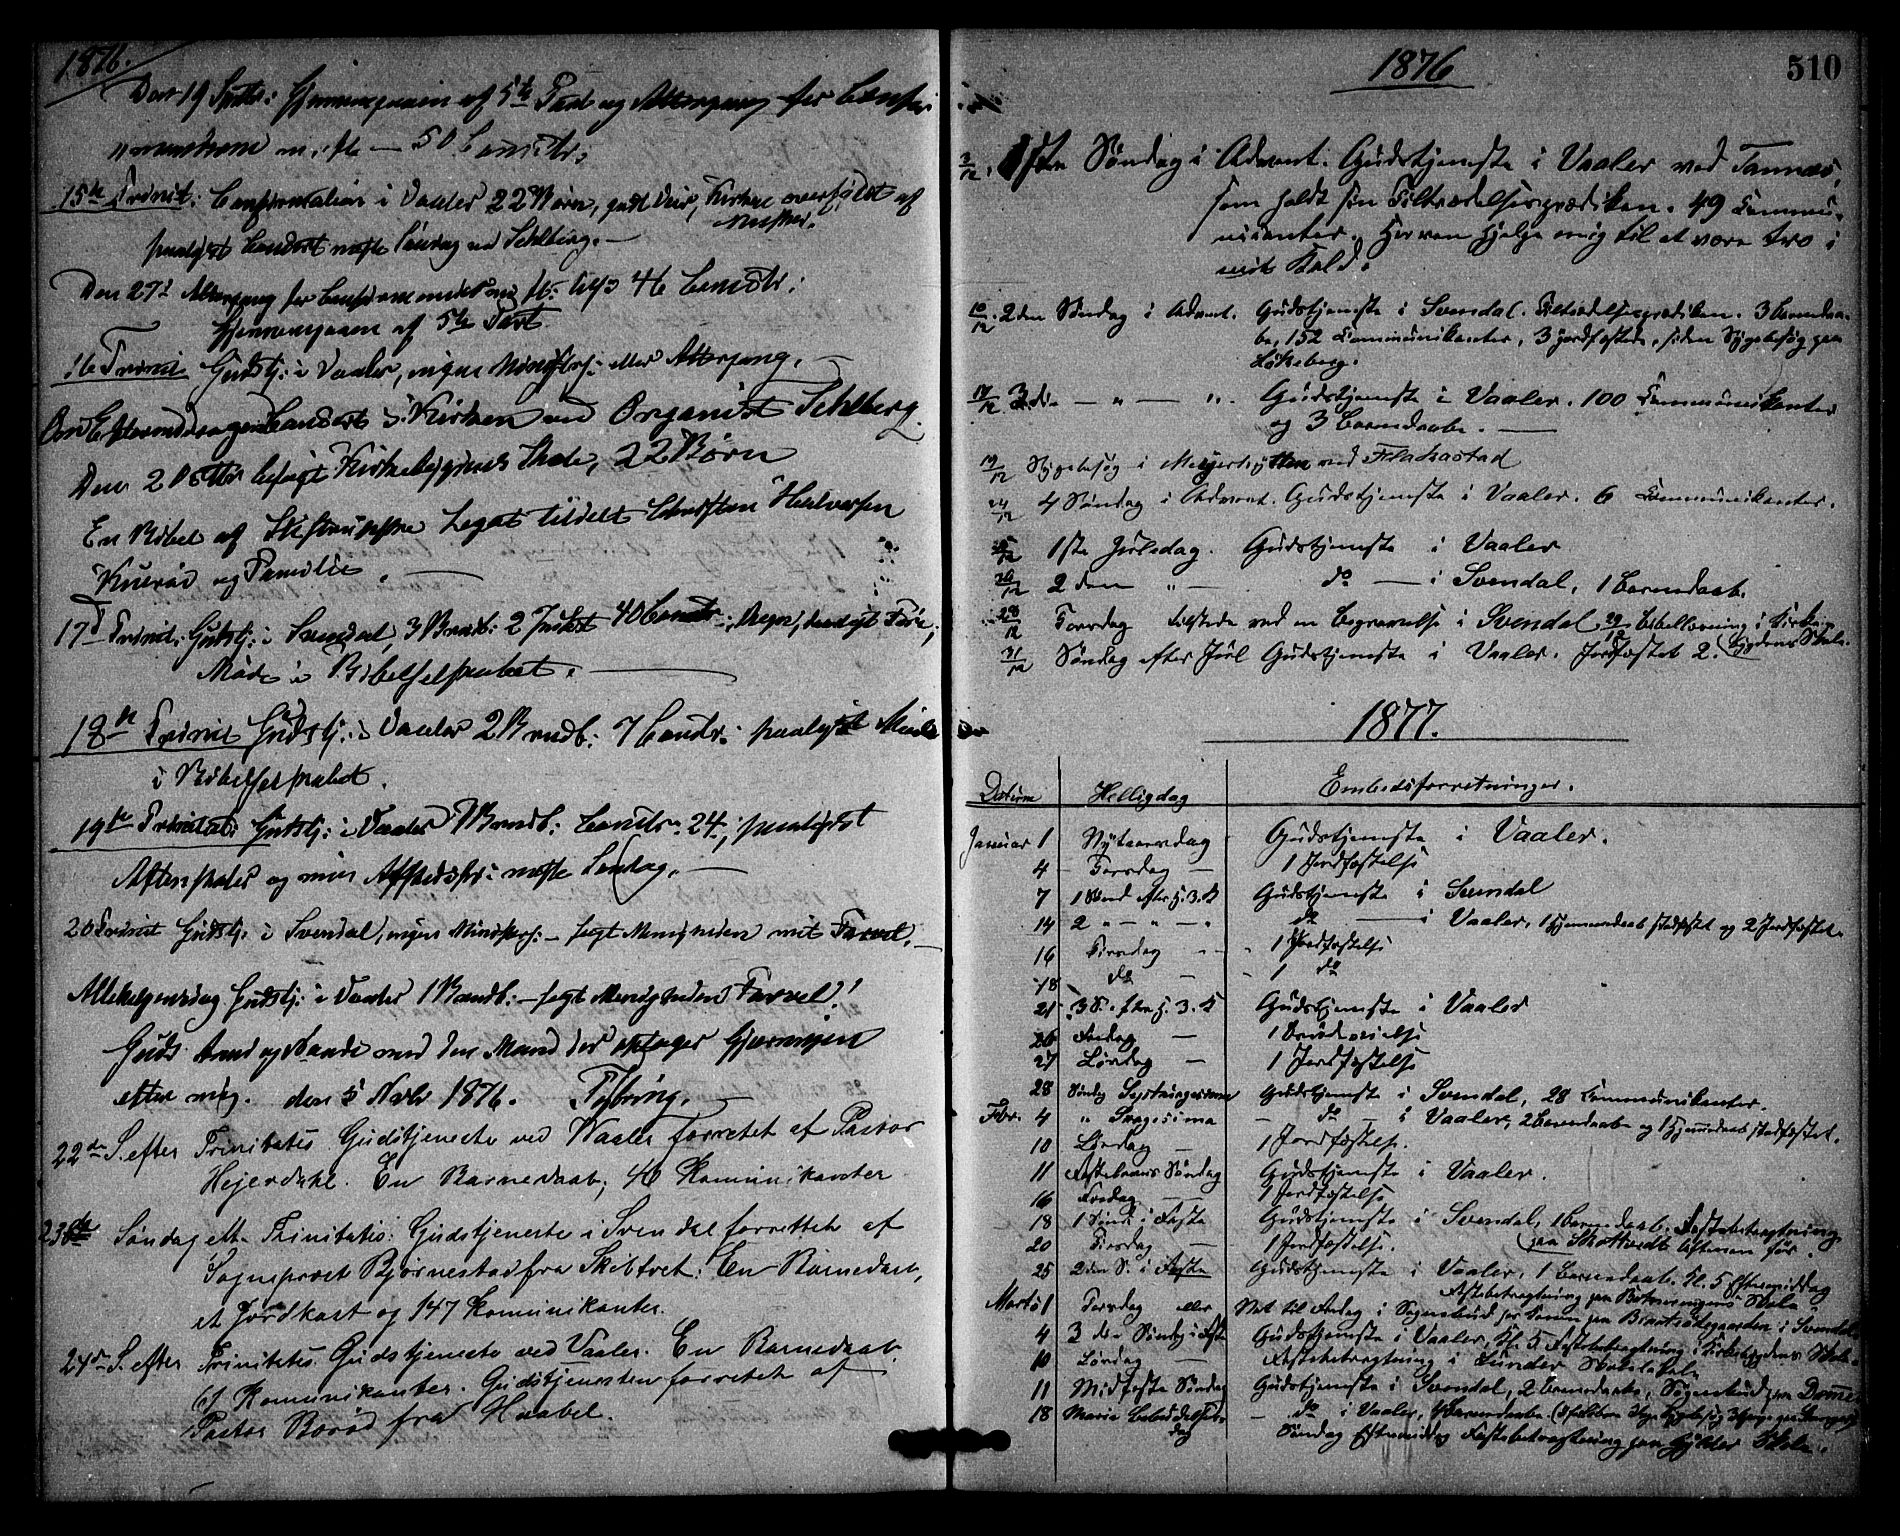 1876.
Den 19 Septbr: Gjennemgaaen af 5te Part og Altergang for Confir-
manderne m. fl. — 50 Comctr:
15de Trinit: Confirmation i Vaaler 22 Børn, godt Veir, Kirken overfyldt af
Mennesker.
paalyst Concert næste Søndag ved Sehlberg. —
Den 27de Altergang for Confirmander m. fl. 46 Comctr:
Gjennemgaaen af 5te Part
16 Trinit: Gudstj: i Vaaler, ingen Ministr: eller Altergang. —
Om Eftermiddagen Concert i Kirken ved Organist Sehlberg.
Den 2 Octbr besøgt Kirkebygdens Skole, 22 Børn
En Bibel af Legat tildelt Christian Halvorsen
og Familie. —
17de Trinit: Gudstj: i Svendal, 3 Barnd: 2 Jordf. 40 Comctr:
Møde i Bibelselskabet. —
18de Trinit Gudstj: i Vaaler 2 Barndb: 7 Comctr: paalyst Møde
i Bibelselskabet.
19de Trinitat: Gudstj: i Vaaler 1 Barndb: Comctr: 24, paalyst
og min Afskedspr: næste Søndag. —
20 Trinit Gudstj: i Svendal, ingen Ministr: — sagt Menigheden mit Farvel. —
Allehelgensdag Gudstj: i Vaaler 1 Barndb: — sagt Menigheden Farvel!
Guds Aand og Naade med den Mand der optager Gjerningen
efter mig. den 5 Novbr 1876.
22de S. efter Trinitatis Gudstjeneste ved Waaler forrettet af Pastor
Hejerdahl. En Barnedaab, 46 Komunikanter
23de Søndag eft. Trinitatis: Gudstjeneste i Svendal forrettet af
Sogneprest Bjørnestad fra Skibtvet: En Barnedaab,
et Jordkast og 147 Komunikanter.
24de S. efter Trinitatis: Gudstjeneste ved Vaaler. En Barnedaab.
61 Komunikanter. Gudstjenesten forrettet af
Pastor Borød fra Haabøl.
1876
510
3/12. 1ste Søndag i Advent. Gudstjeneste i Vaaler ved Tannæs,
som holdt sin Tiltrædelsesprædiken. 49 Commu-
nicanter. Herren hjelpe mig til at være tro i
mit Kald.
10/12. 2den Søndag i Advent. Gudstjeneste i Svendal. Tiltrædelsesprædiken. 3 Barnedaa-
be, 152 Communikanter, 3 jordfæstede, siden Sygebesøg paa
Løkeberg.
17/12 3die — " — ". Gudstjeneste i Vaaler. 100 Communikanter
og 3 Barnedaabe. —
19/12 Sygebesøg i ved Flakastad
24/12 4 Søndag i Advent. Gudstjeneste i Vaaler. 6 Communikanter.
25/12 1ste Juledag. Gudstjeneste i Vaaler
26/12 2den " — do — i Svendal, 1 Barnedaab.
28/12 Torsdag tilstede ved en Begravelse i Svendal, 29 Bibellæsning i Kirke-
bygdens Skole.
31/12 Søndag efter Jul Gudstjeneste i Vaaler. Jordfæstet 2.
1877.
Datum Helligdag Embedsforretninger.
Januar 1 Nytaarsdag Gudstjeneste i Vaaler.
4 Torsdag — 1 Jordfæstelse
7 1 Sønd. efter H. 3. K Gudstjeneste i Svendal
14 2 " — " — " do — i Vaaler, 1 Hjemmedaab stadfæstet og 2 Jordfæstet.
16 Tirsdag — 1 Jordfæstelse
18 do — 1 do
21 3 S. efter H. 3. K Gudstjeneste i Vaaler
26 Fredag — 1 Brudevielse
27 Løndag — 1 Jordfæstelse
28 Søndag Septuagesima Gudstjeneste i Svendal, 28 Communikanter.
Febr. 4 " Sexagesima — do — i Vaaler, 2 Barnedaabe og 1 Hjemmedaab stadfæstet.
10 Løndag — 1 Jordfæstelse.
11 Fastelavns Søndag Gudstjeneste i Vaaler.
16 Fredag — 1 Jordfæstelse
18 1 Sønd. i Faste Gudstjeneste i Svendal, 1 Barnedaab. Fastebetragtning
paa Skottvedt Aftenen før.
20 Tirsdag — 1 Jordfæstelse.
25 2den S. i Faste Gudstjeneste i Vaaler, 1 Barnedaab. Kl. 5 Eftermiddag
Fastebetragtning paa Skole
Marts 1 Torsdag eller Nat til Fredag i Sognebud i Svendal
4 3die Søndag i Faste Gudstjeneste i Vaaler, Kl. 5 Fastebetragtning i Kirkebygdens Skole.
10 Løndag — Fastebetragtning i Lunder Skolelokale
11 Midfaste Søndag Gudstjeneste i Svendal, 2 Barnedaabe, Sognebud paa
18 Marie Bebudelses-
dag — do i Vaaler, 4 Barnedaabe
Søndag Eftermiddag Fastebetragtning paa Skole.